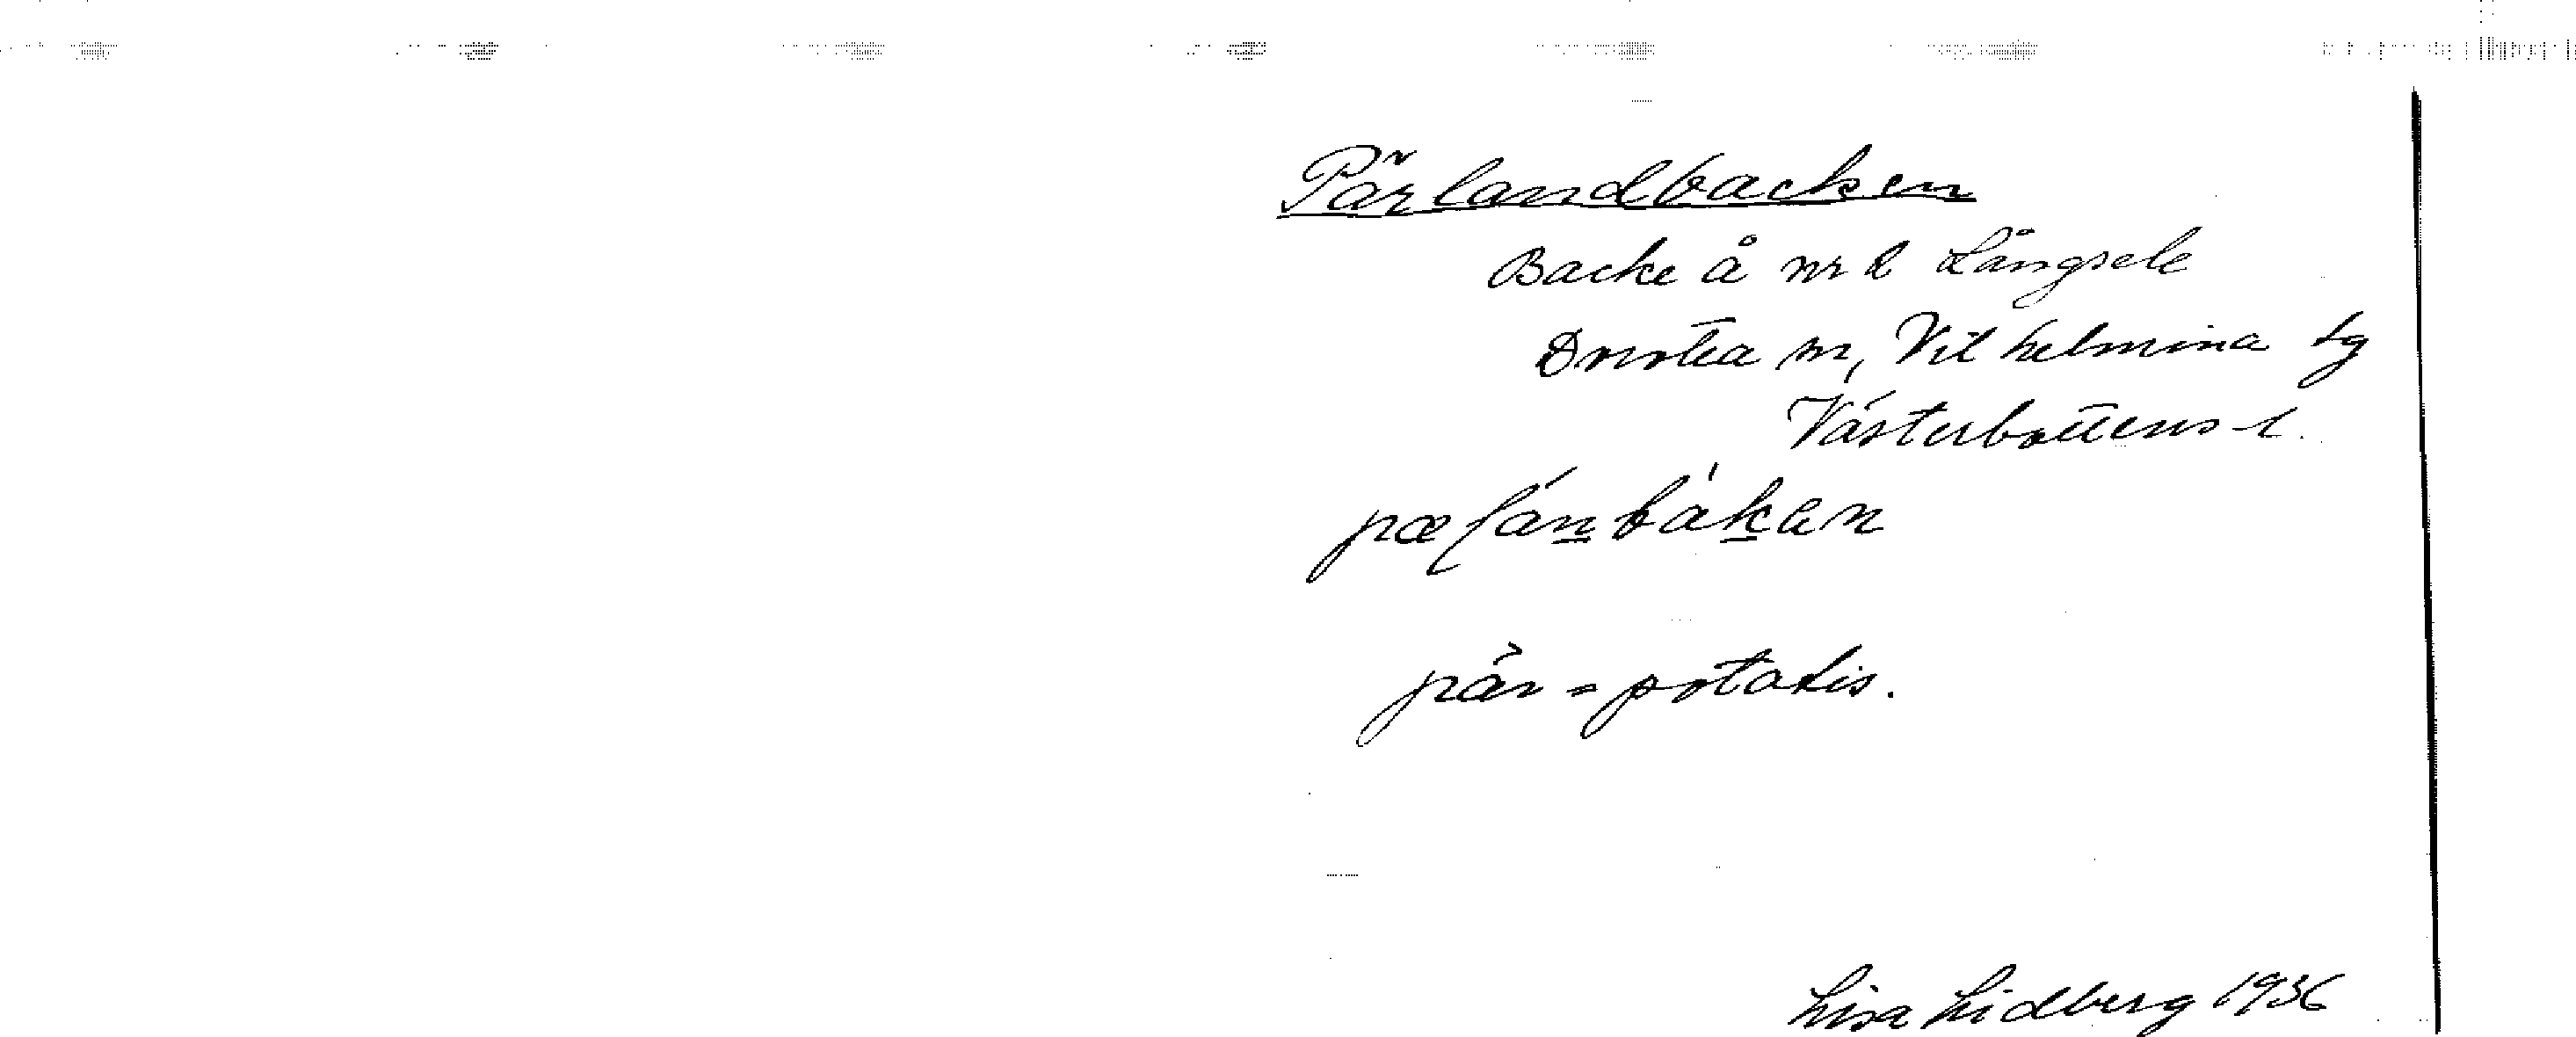 Pärlandbacken
Backe å nr 2 Långsele
Dorotea sn, Vilhelmina tg
Västerbottens l.
pælánbàkan
pär = potatis.
Lisa Lidberg 1936